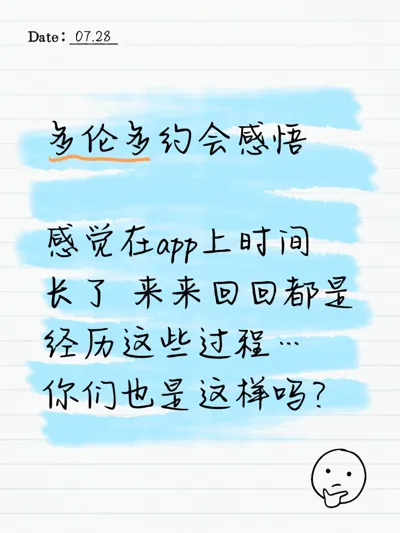 Date: 07.28
多伦多约会感悟
感觉在app上时间
长了 来来回回都是
经历这些过程…
你们也是这样吗?